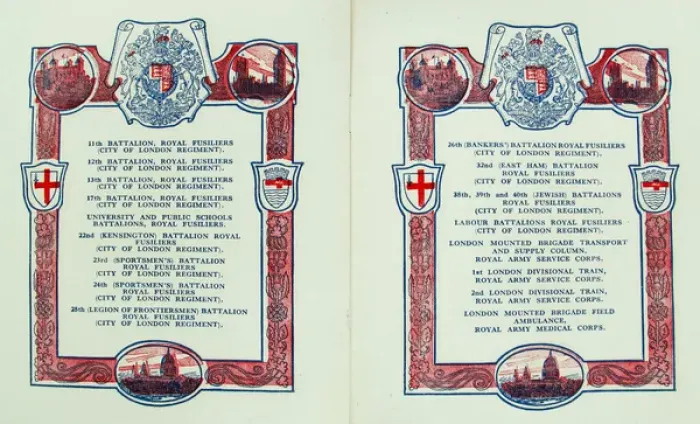 11th BATTALION, ROYAL FUSILIERS
(CITY OF LONDON REGIMENT).
12th BATTALION, ROYAL FUSILIERS
(CITY OF LONDON REGIMENT).
13th BATTALION, ROYAL FUSILIERS
(CITY OF LONDON REGIMENT).
17th BATTALION, ROYAL FUSILIERS
(CITY OF LONDON REGIMENT).
UNIVERSITY AND PUBLIC SCHOOLS
BATTALIONS, ROYAL FUSILIERS.
22nd (KENSINGTON) BATTALION ROYAL
FUSILIERS
(CITY OF LONDON REGIMENT).
23rd (SPORTSMEN'S) BATTALION
ROYAL FUSILIERS
(CITY OF LONDON REGIMENT).
24th (SPORTSMEN'S) BATTALION
ROYAL FUSILIERS
(CITY OF LONDON REGIMENT).
25th (LEGION OF FRONTIERSMEN) BATTALION
ROYAL FUSILIERS
(CITY OF LONDON REGIMENT).
26th (BANKERS') BATTALION ROYAL FUSILIERS
(CITY OF LONDON REGIMENT).
32nd (EAST HAM) BATTALION
ROYAL FUSILIERS
(CITY OF LONDON REGIMENT).
38th, 39th and 40th (JEWISH) BATTALIONS
ROYAL FUSILIERS
(CITY OF LONDON REGIMENT).
LABOUR BATTALIONS ROYAL FUSILIERS
(CITY OF LONDON REGIMENT).
LONDON MOUNTED BRIGADE TRANSPORT
AND SUPPLY COLUMN,
ROYAL ARMY SERVICE CORPS.
1st LONDON DIVISIONAL TRAIN,
ROYAL ARMY SERVICE CORPS.
2nd LONDON DIVISIONAL TRAIN,
ROYAL ARMY SERVICE CORPS.
LONDON MOUNTED BRIGADE FIELD
AMBULANCE,
ROYAL ARMY MEDICAL CORPS.